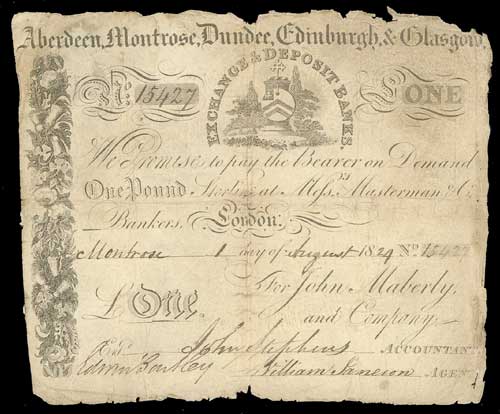 Aberdeen, Montrose, Dundee, Edinburgh, & Glasgow,
EXCHANGE & DEPOSIT BANKS.
No. 15427
£ONE
We Promise to pay the Bearer on Demand
One Pound Sterling at Messrs. Masterman & Co.
Bankers, London.
Montrose 1 day of August 1829 No. 15427
£ One. For John Maberly,
and Company.
John Stephens ACCOUNTANT
Entd. William AGENT